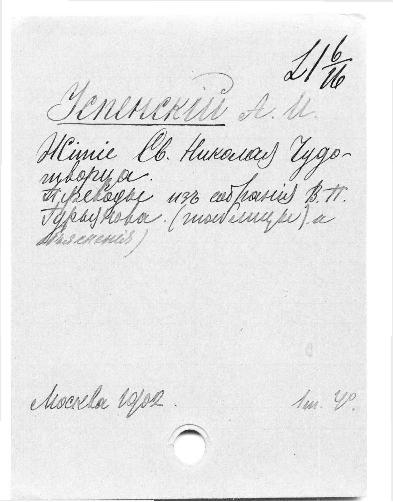 L1 6/16
Успенскій А. И.
Житіе Св. Николая Чудо-
творца.
Переводы изъ собранія В. П.
Гурьянова. (таблицы) и
объясненія)
Москва 1902.
1т. 4°.